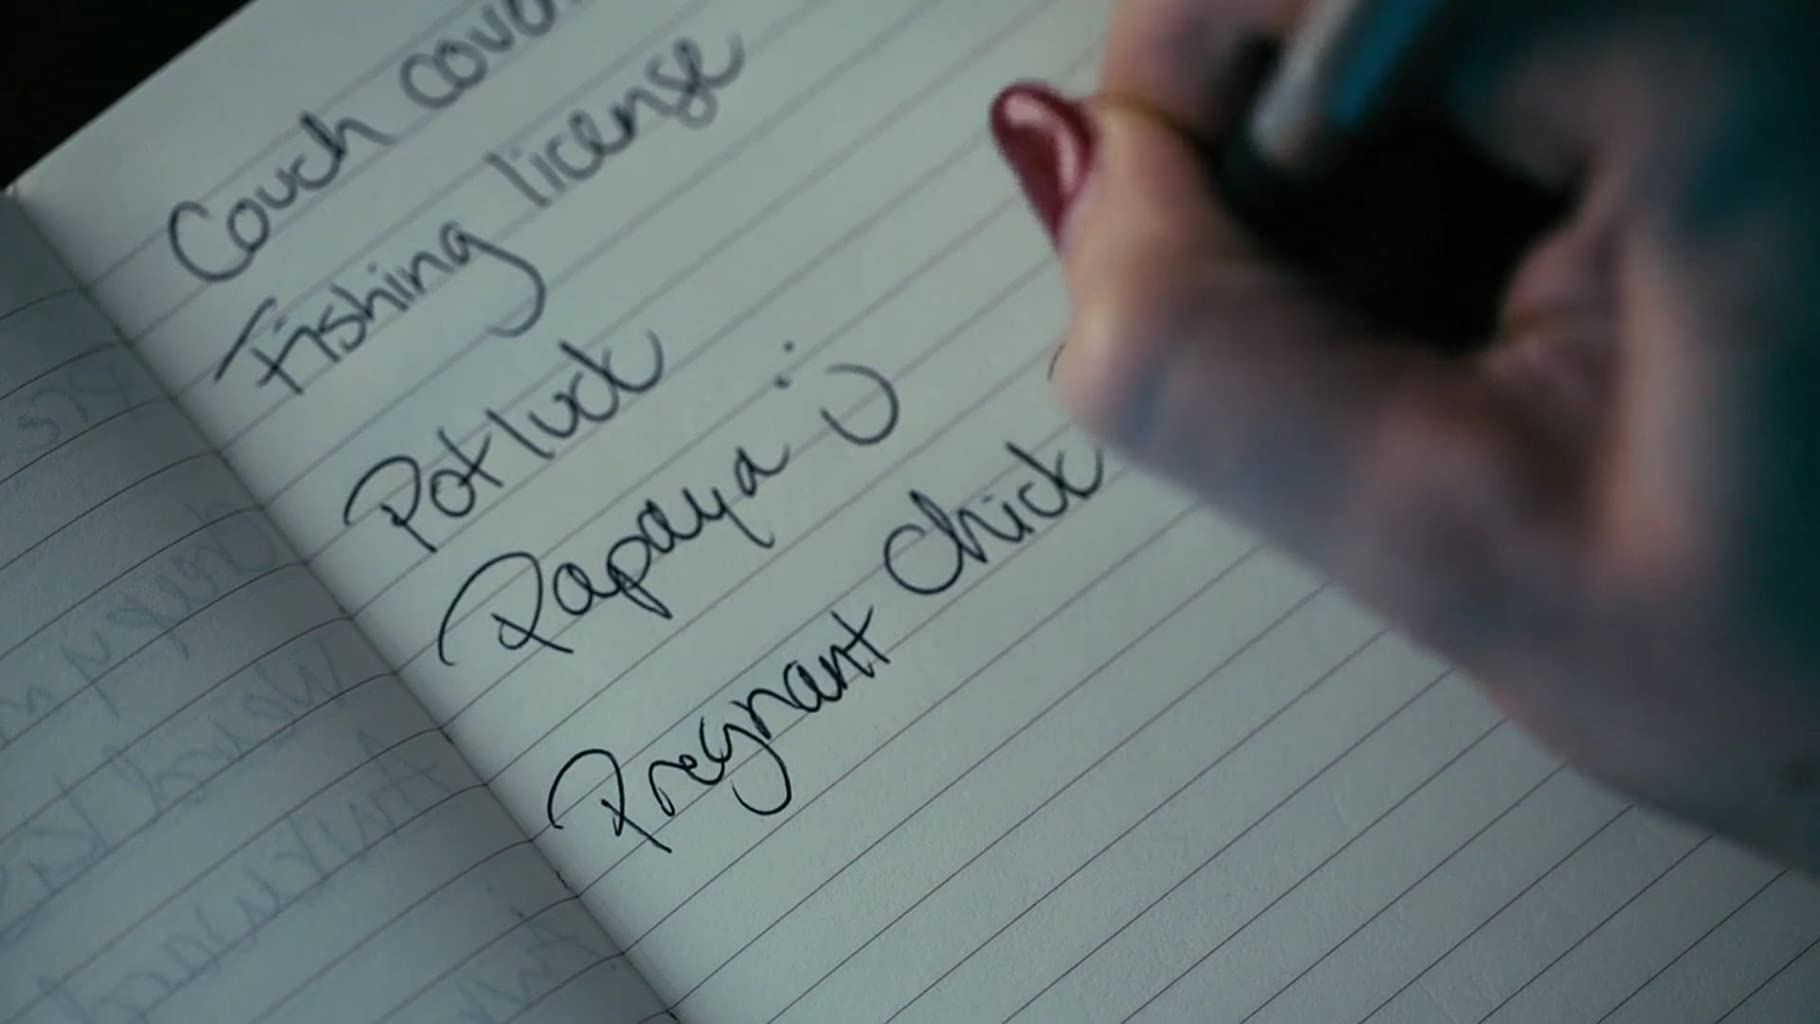 Couch
Fishing license
Potluck
Papaya :)
Pregnant chick